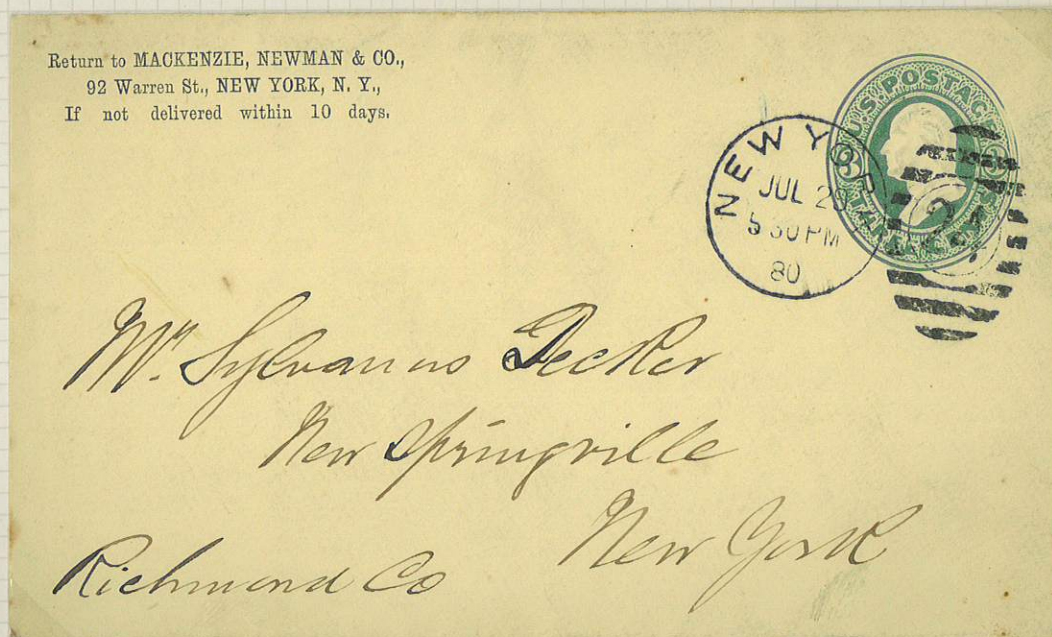 Return to MACKENZIE, NEWMAN & CO.,
92 Warren St., NEW YORK, N. Y.,
If not delivered within 10 days.
U.S. POSTAGE
3 3
THREE CENTS
NEW YORK
JUL 29
5 30 PM
80
2
Mr. Sylvanus Decker
New Springville
New York
Richmond Co